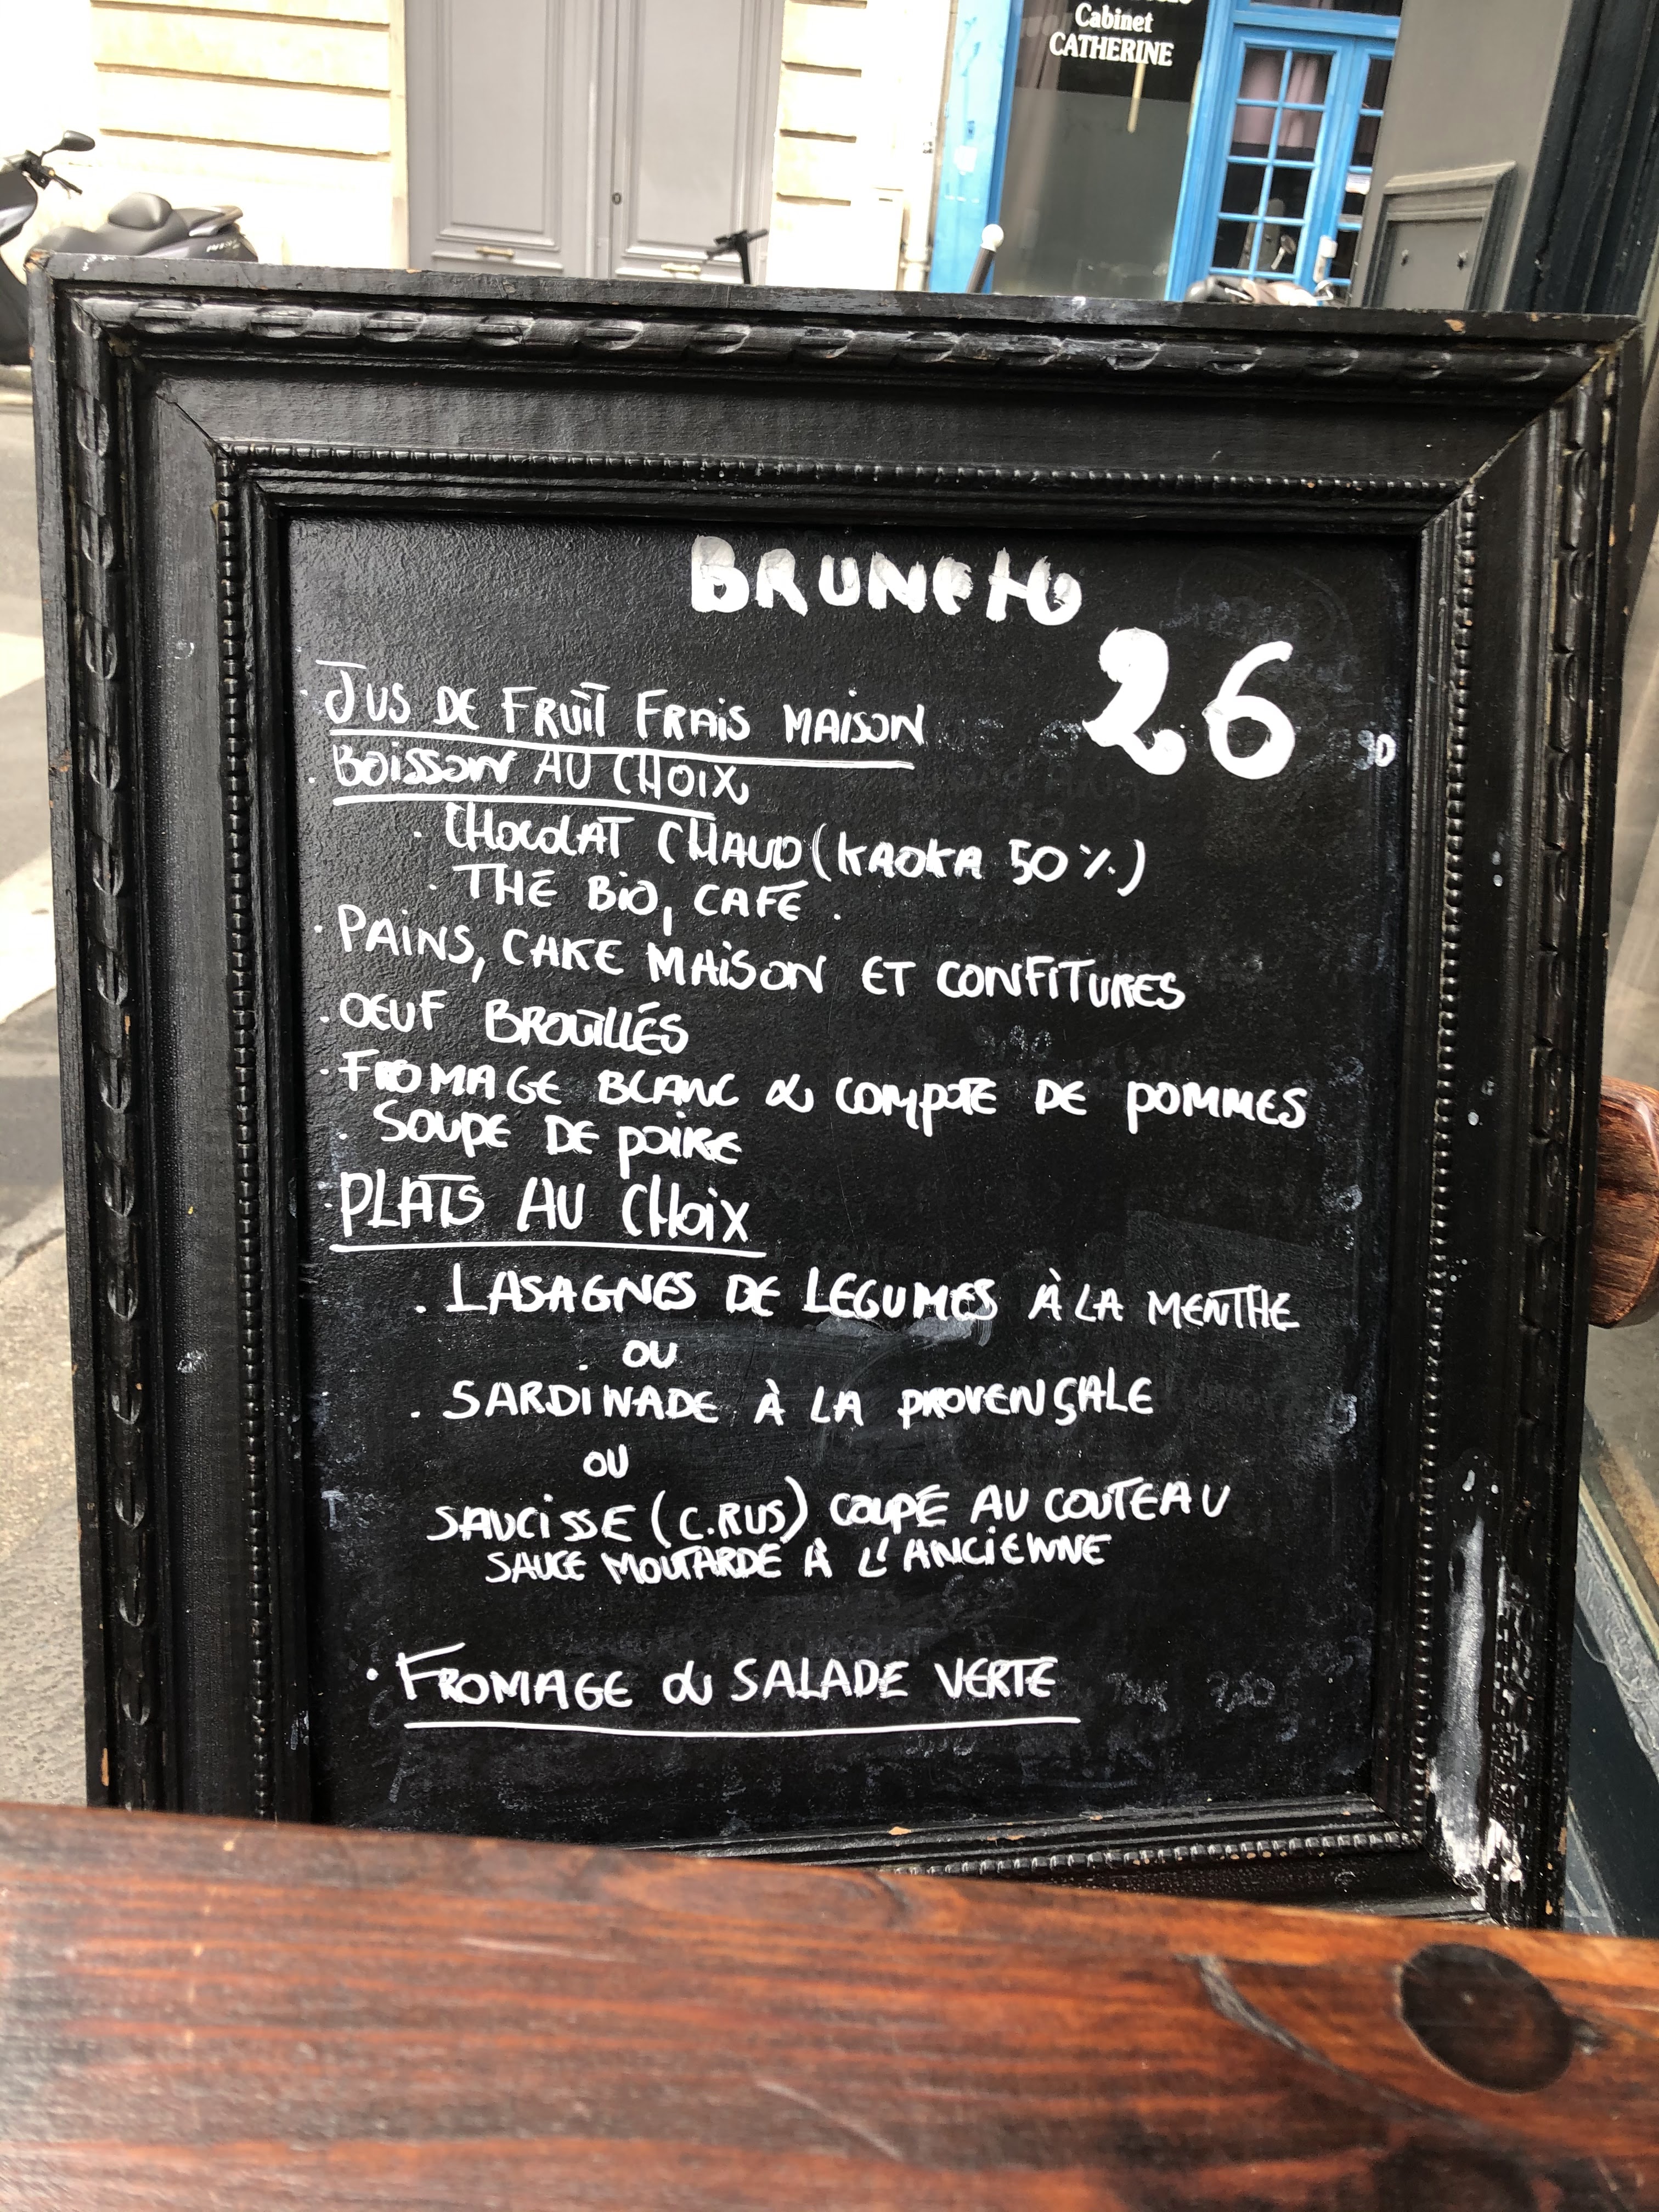 Cabinet
CATHERINE
BRUNCH
26
· JUS DE FRUIT FRAIS MAISON
· BOISSON AU CHOIX
· CHOCOLAT CHAUD (KAOKA 50%)
· THÉ BIO, CAFÉ.
· PAINS, CAKE MAISON ET CONFITURES
· OEUF BROUILLÉS
· FROMAGE BLANC OU COMPOTE DE POMMES
· SOUPE DE POIRE
· PLATS AU CHOIX
· LASAGNES DE LEGUMES À LA MENTHE
· OU
· SARDINADE À LA PROVENÇALE
OU
SAUCISSE (C.RUS) COUPÉ AU COUTEAU
SAUCE MOUTARDE À L'ANCIENNE
· FROMAGE OU SALADE VERTE